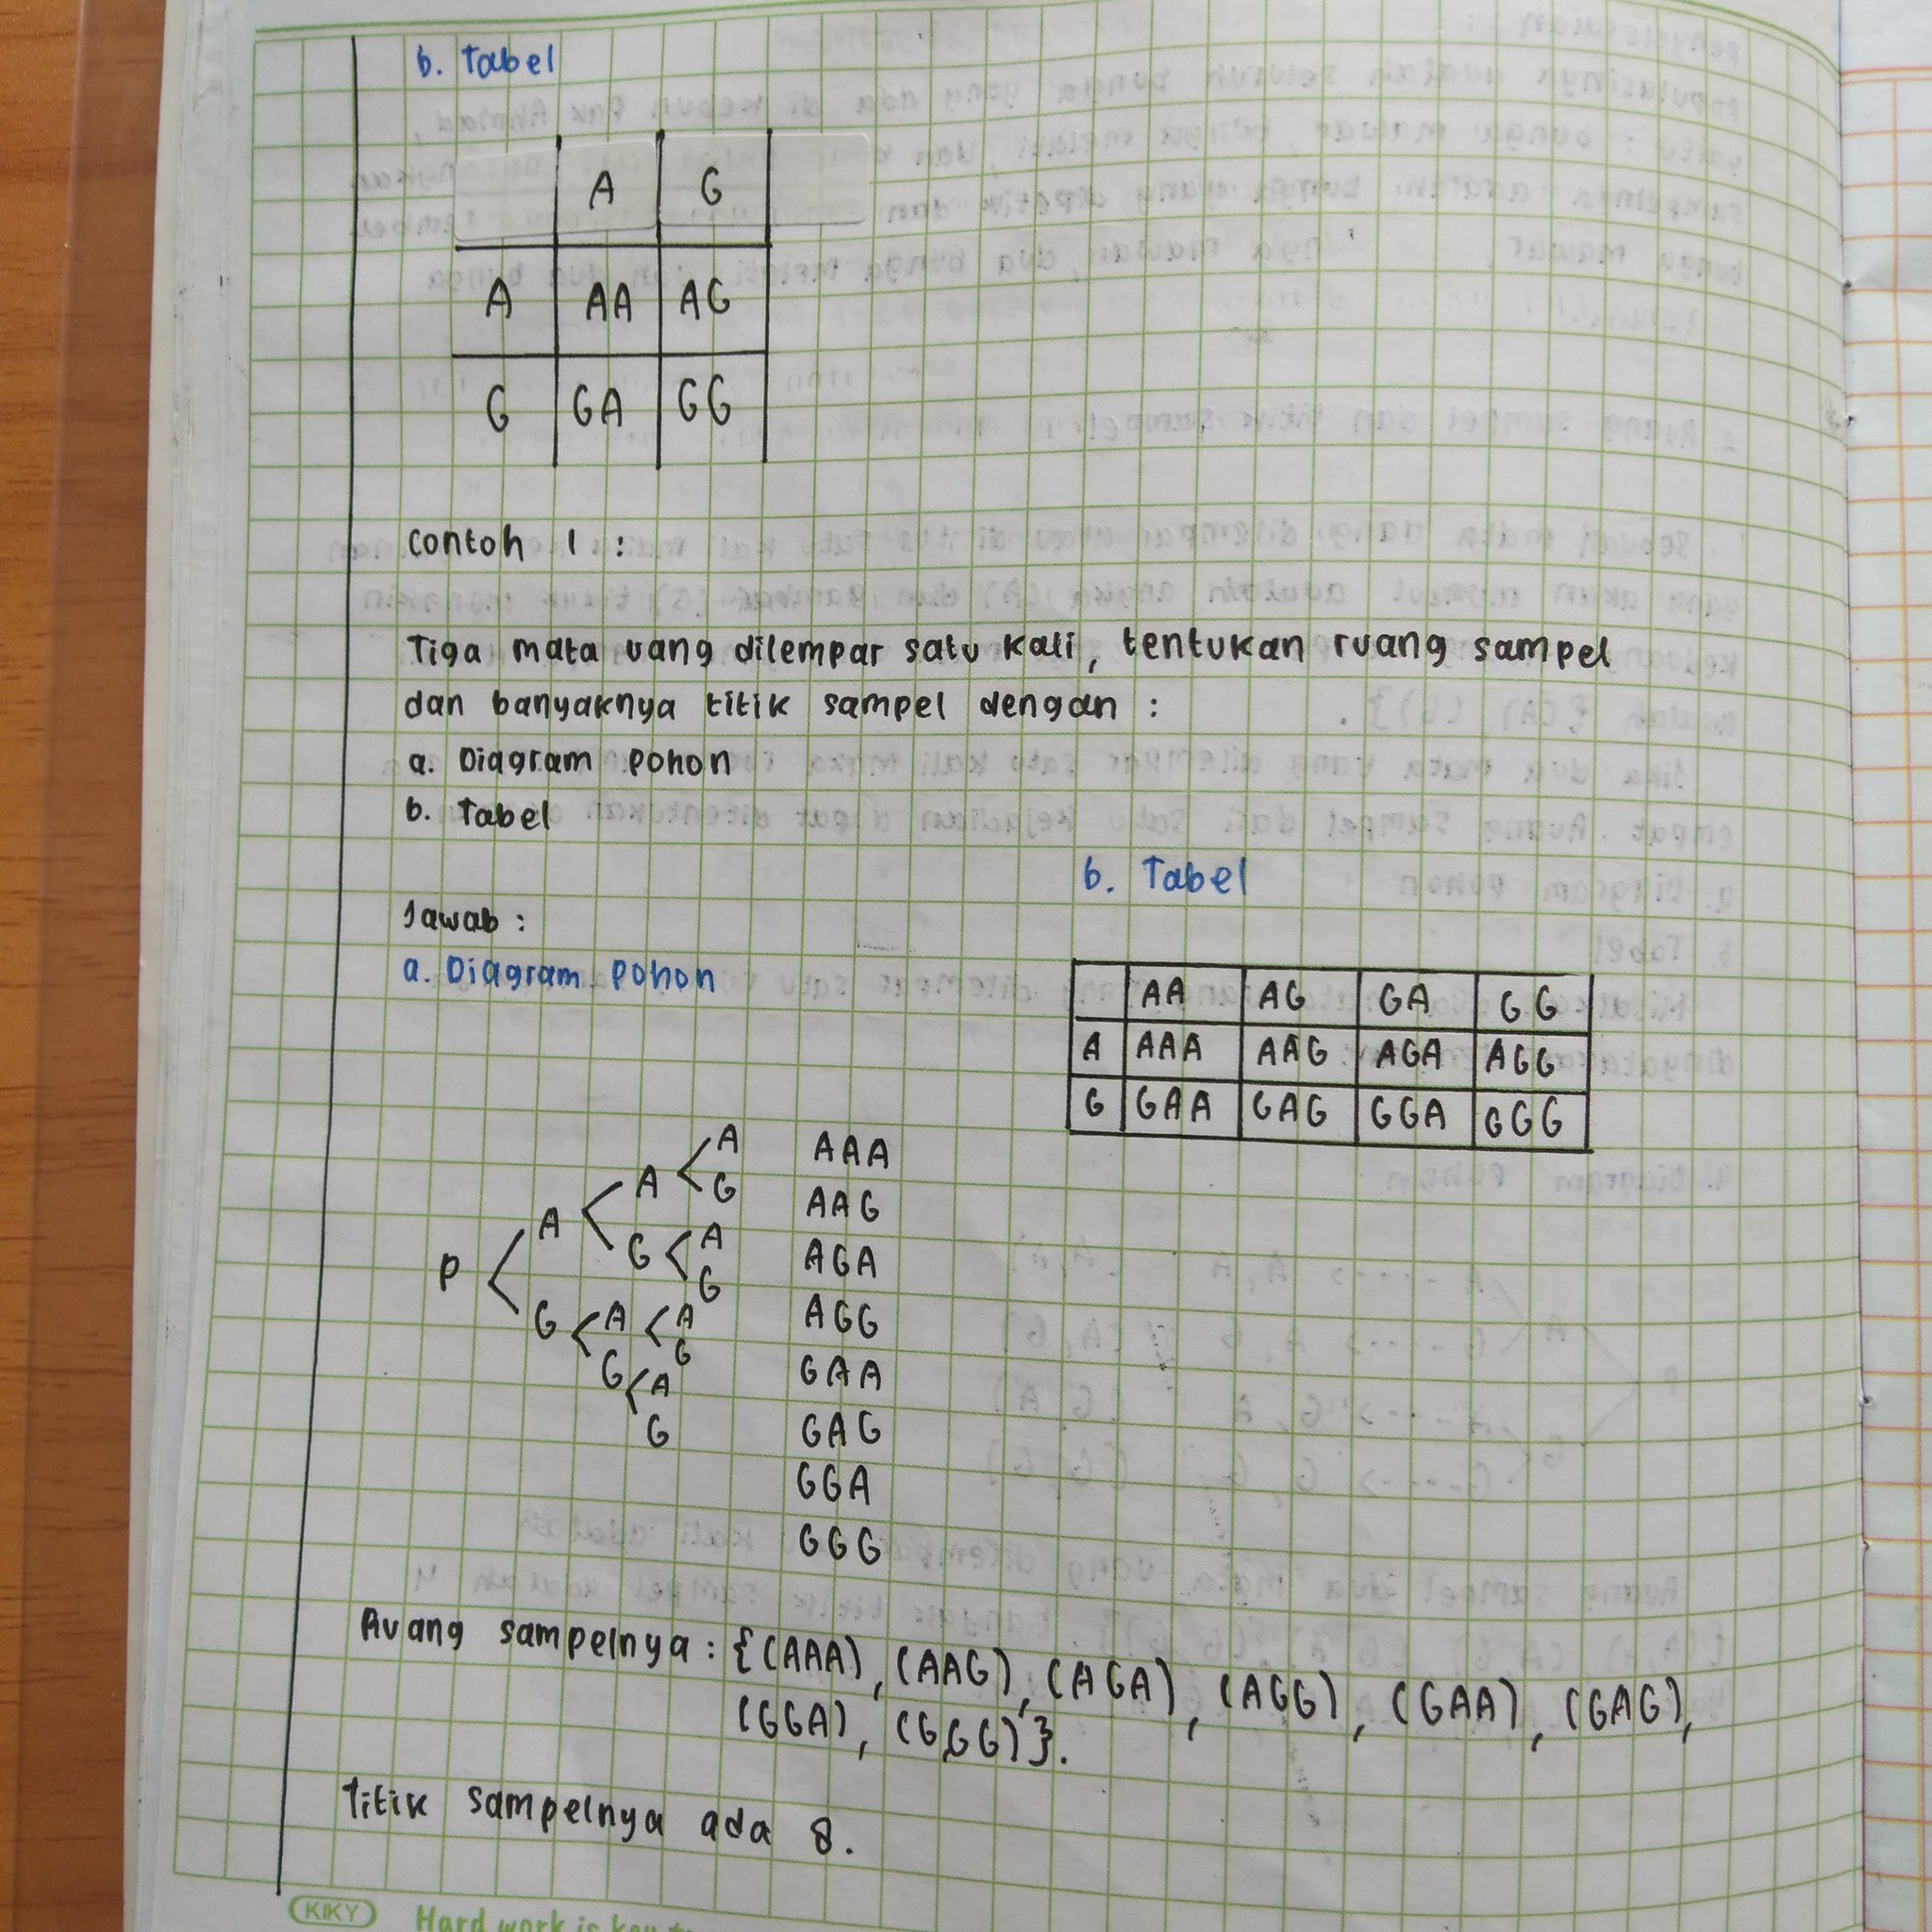 b. Tabel
A G
A AA AG
G GA GG
Contoh 1 :
Tiga mata uang dilempar satu kali, tentukan ruang sampel
dan banyaknya titik sampel dengan :
a. Diagram pohon
b. Tabel
Jawab :
a. Diagram pohon
P
A
G
A
G
A
G
A
G
A
G
A
G
A
G
AAA
AAG
AGA
AGG
GAA
GAG
GGA
GGG
b. Tabel
AA AG GA GG
A AAA AAG AGA AGG
G GAA GAG GGA GGG
Ruang sampelnya : {(AAA), (AAG), (AGA), (AGG), (GAA), (GAG),
(GGA), (GGG)}.
Titik sampelnya ada 8.
KIKY Hard work is key